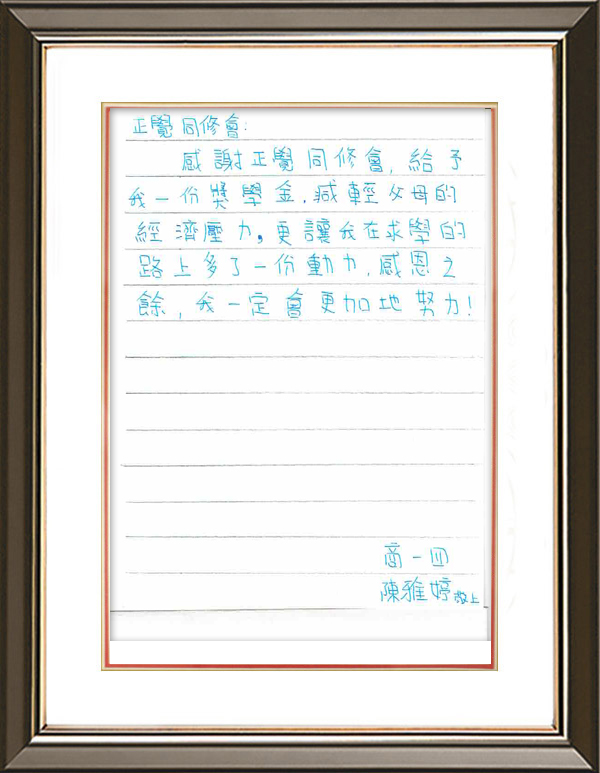 正覺同修會:
感謝正覺同修會,給予
我一份獎學金,減輕父母的
經濟壓力。更讓我在求學的
路上多了一份動力,感恩之
餘,我一定會更加地努力!
商一四
陳雅婷 敬上